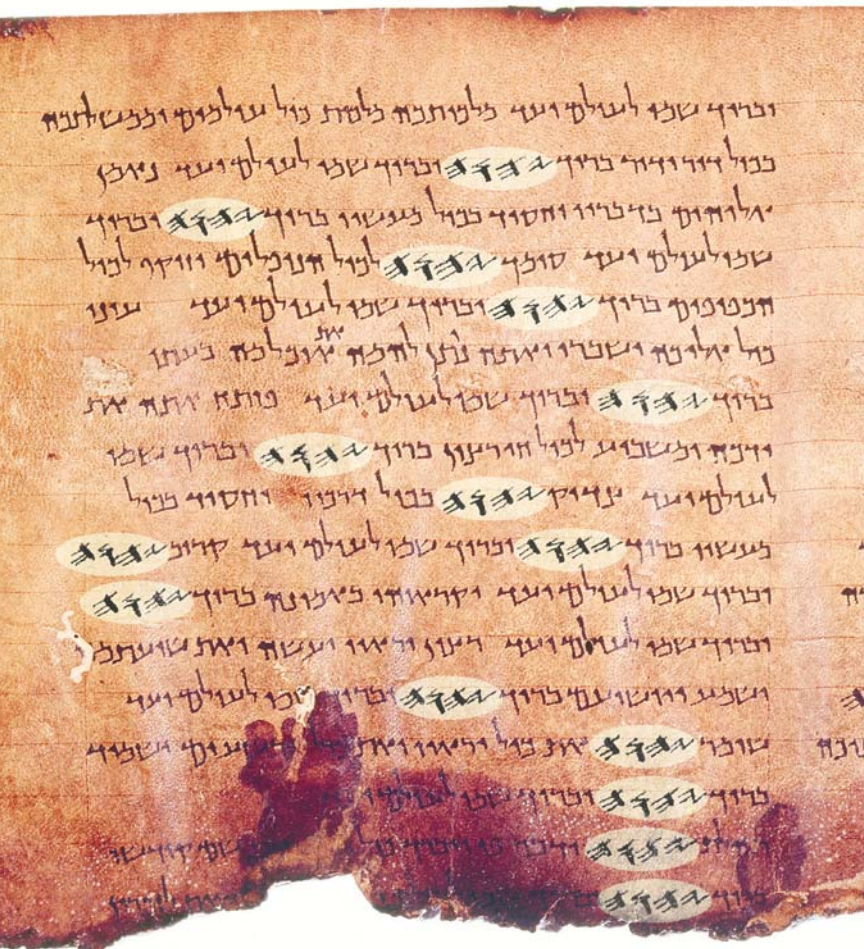 וברוך שמו לעולם ועד מלכותכה מלכות כול עולמים וממשלתכה
בכול דור ודור ברוך 𐤉𐤄𐤅𐤄 וברוך שמו לעולם ועד נאמן
אלוהים בדבריו וחסיד בכול מעשיו ברוך 𐤉𐤄𐤅𐤄 וברוך
שמו לעולם ועד סומך 𐤉𐤄𐤅𐤄 לכול הנופלים וזוקף לכול
הכפופים ברוך 𐤉𐤄𐤅𐤄 וברוך שמו לעולם ועד עיני
כול אליכה ישברו ואתה נותן להמה את אוכלמה בעתו
ברוך 𐤉𐤄𐤅𐤄 וברוך שמו לעולם ועד פותח אתה את
ידכה ומשביע לכול חי רצון ברוך 𐤉𐤄𐤅𐤄 וברוך שמו
לעולם ועד צדיק 𐤉𐤄𐤅𐤄 בכול דרכיו וחסיד בכול
מעשיו ברוך 𐤉𐤄𐤅𐤄 וברוך שמו לעולם ועד קרוב 𐤉𐤄𐤅𐤄
וברוך שמו לעולם ועד יקראוהו באמונה ברוך 𐤉𐤄𐤅𐤄
וברוך שמו לעולם ועד רצון יראיו יעשה ואת שועתמה
ישמע ויושיעם ברוך 𐤉𐤄𐤅𐤄 וברוך שמו לעולם ועד
שומר 𐤉𐤄𐤅𐤄 את כול יראיו ואת כול הרשעים ישמיד
ברוך 𐤉𐤄𐤅𐤄 וברוך שמו לעולם ועד
תהלת 𐤉𐤄𐤅𐤄 ידבר פי ויברך כול שם קודשו
ברוך 𐤉𐤄𐤅𐤄 זואת לזכרון